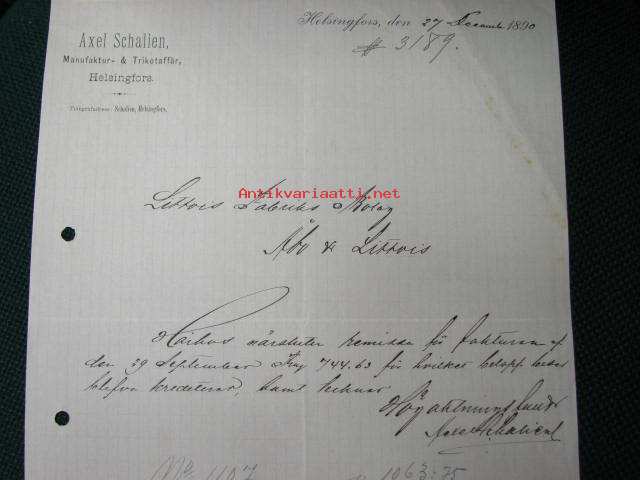 Helsingfors, den 27 December 1890
# 3189.
Axel Schalien,
Manufaktur- & Trikotaffär,
Helsingfors.
Telegrafadress: Schalien, Helsingfors.
Antikvariaatti.net
Littois Fabriks Bolag
Åbo & Littois
Härhos närslutes remissa för fakturan af
den 29 September Fmg 744.63 för hvilket belopp
blifva krediterad, samt tecknar
Högaktningsfullt
Axel Schalien
No 1107
1063:75